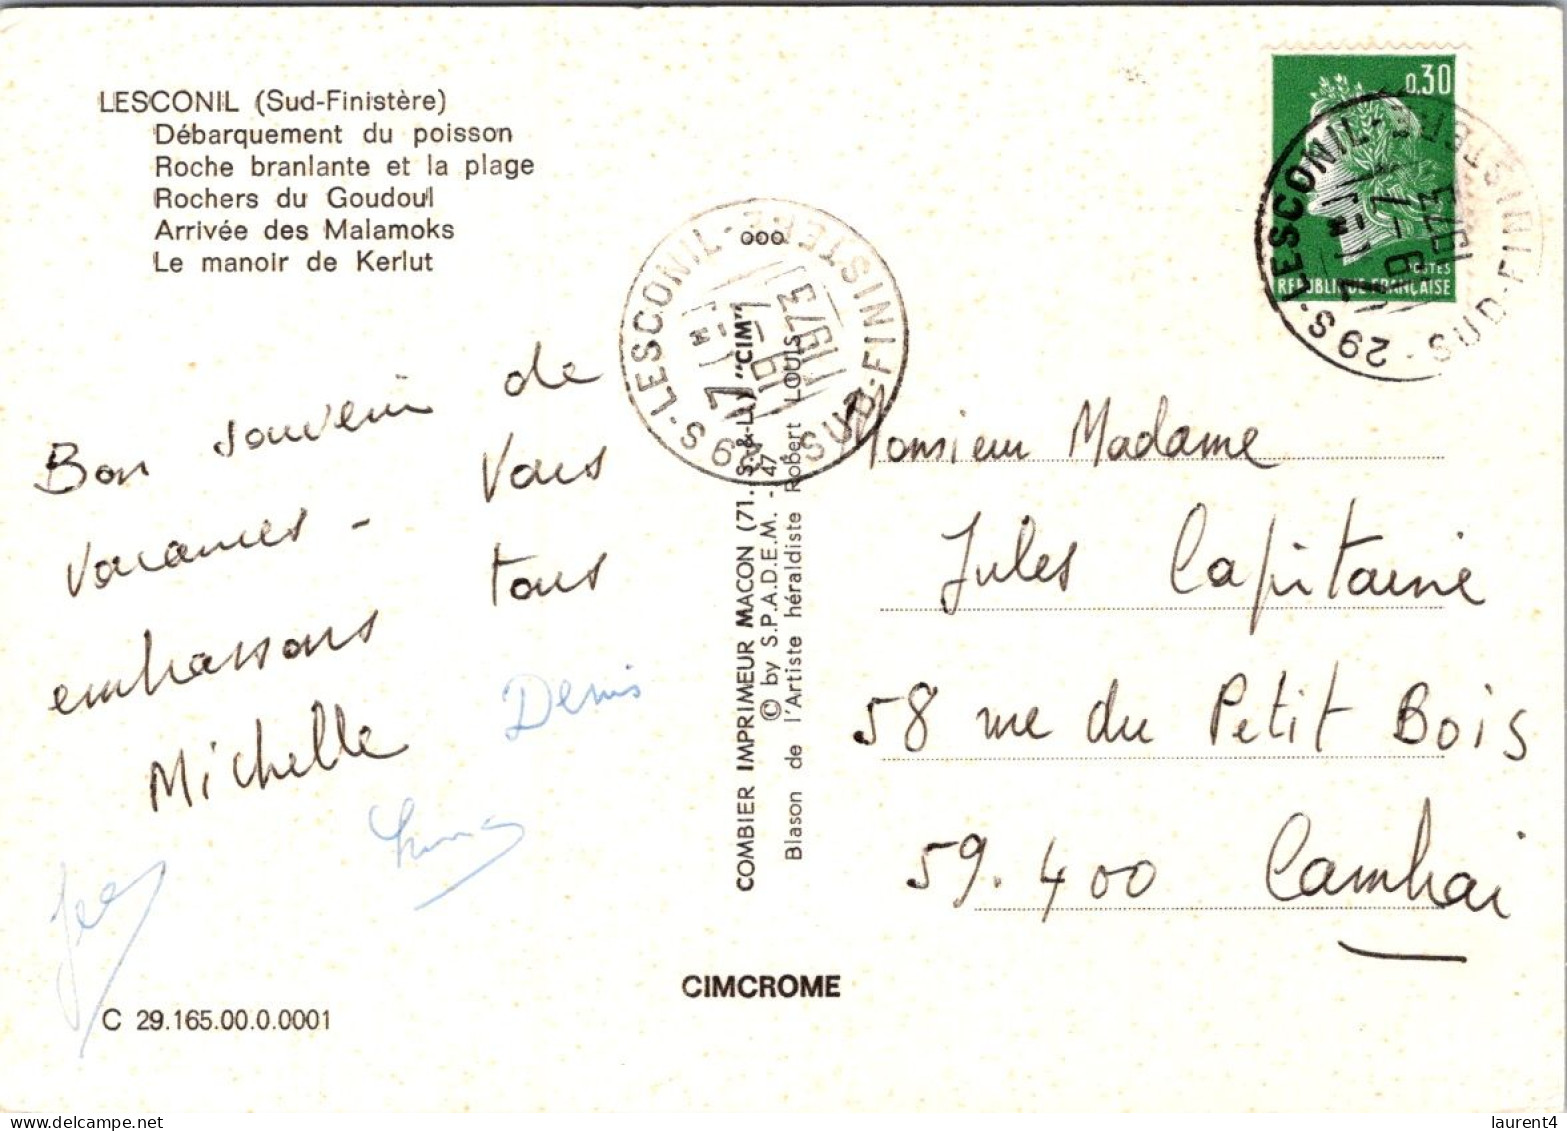 LESCONIL (Sud-Finistère)
Débarquement du poisson
Roche branlante et la plage
Rochers du Goudoul
Arrivée des Malamoks
Le manoir de Kerlut
Bon souvenir de
vacances - Vous
embrassons tous
Michelle Denis
C 29.165.00.0.0001
COMBIER IMPRIMEUR MACON (71. S.-&-L.) "CIM"
© by S.P.A.D.E.M. - 47
Blason de l'Artiste héraldiste Robert LOUIS
ooo
29 S·LESCONIL-FINISTERE·SUD-FINISTERE
1973
CIMCROME
0,30
POSTES
REPUBLIQUE FRANÇAISE
29 S·LESCONIL·SUD-FINISTERE
1973
Monsieur Madame
Jules Capitaine
58 rue du Petit Bois
59.400 Cambrai
laurent4